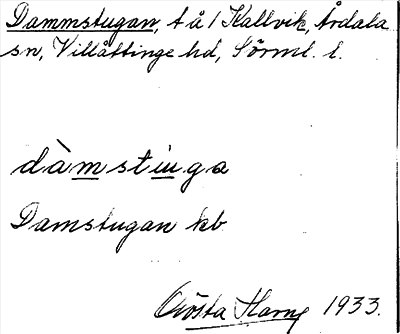 Dammstugan, t å 1 Kallvik, Årdala
sn, Villåttinge hd, Sörml. l.
dàmstuga
Damstugan kb
Gösta Harne 1933.